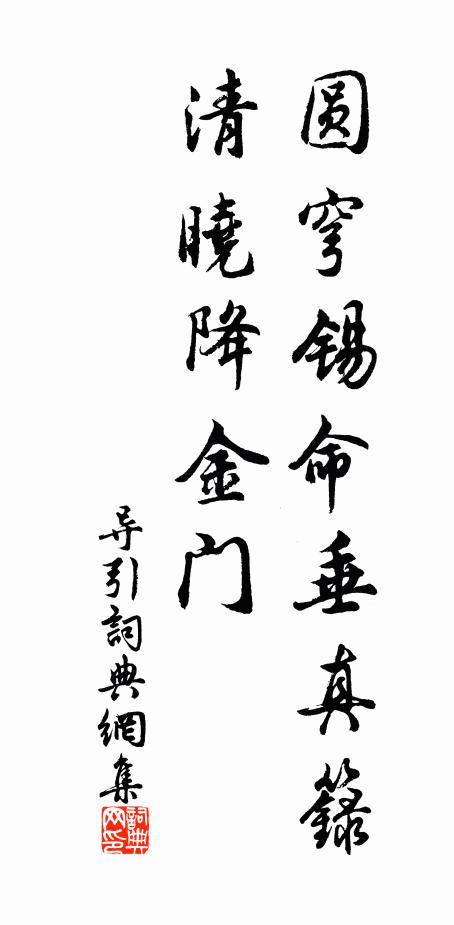 圆穹锡命垂真籙
清曉降金门
导引詞典網集
詞典網印